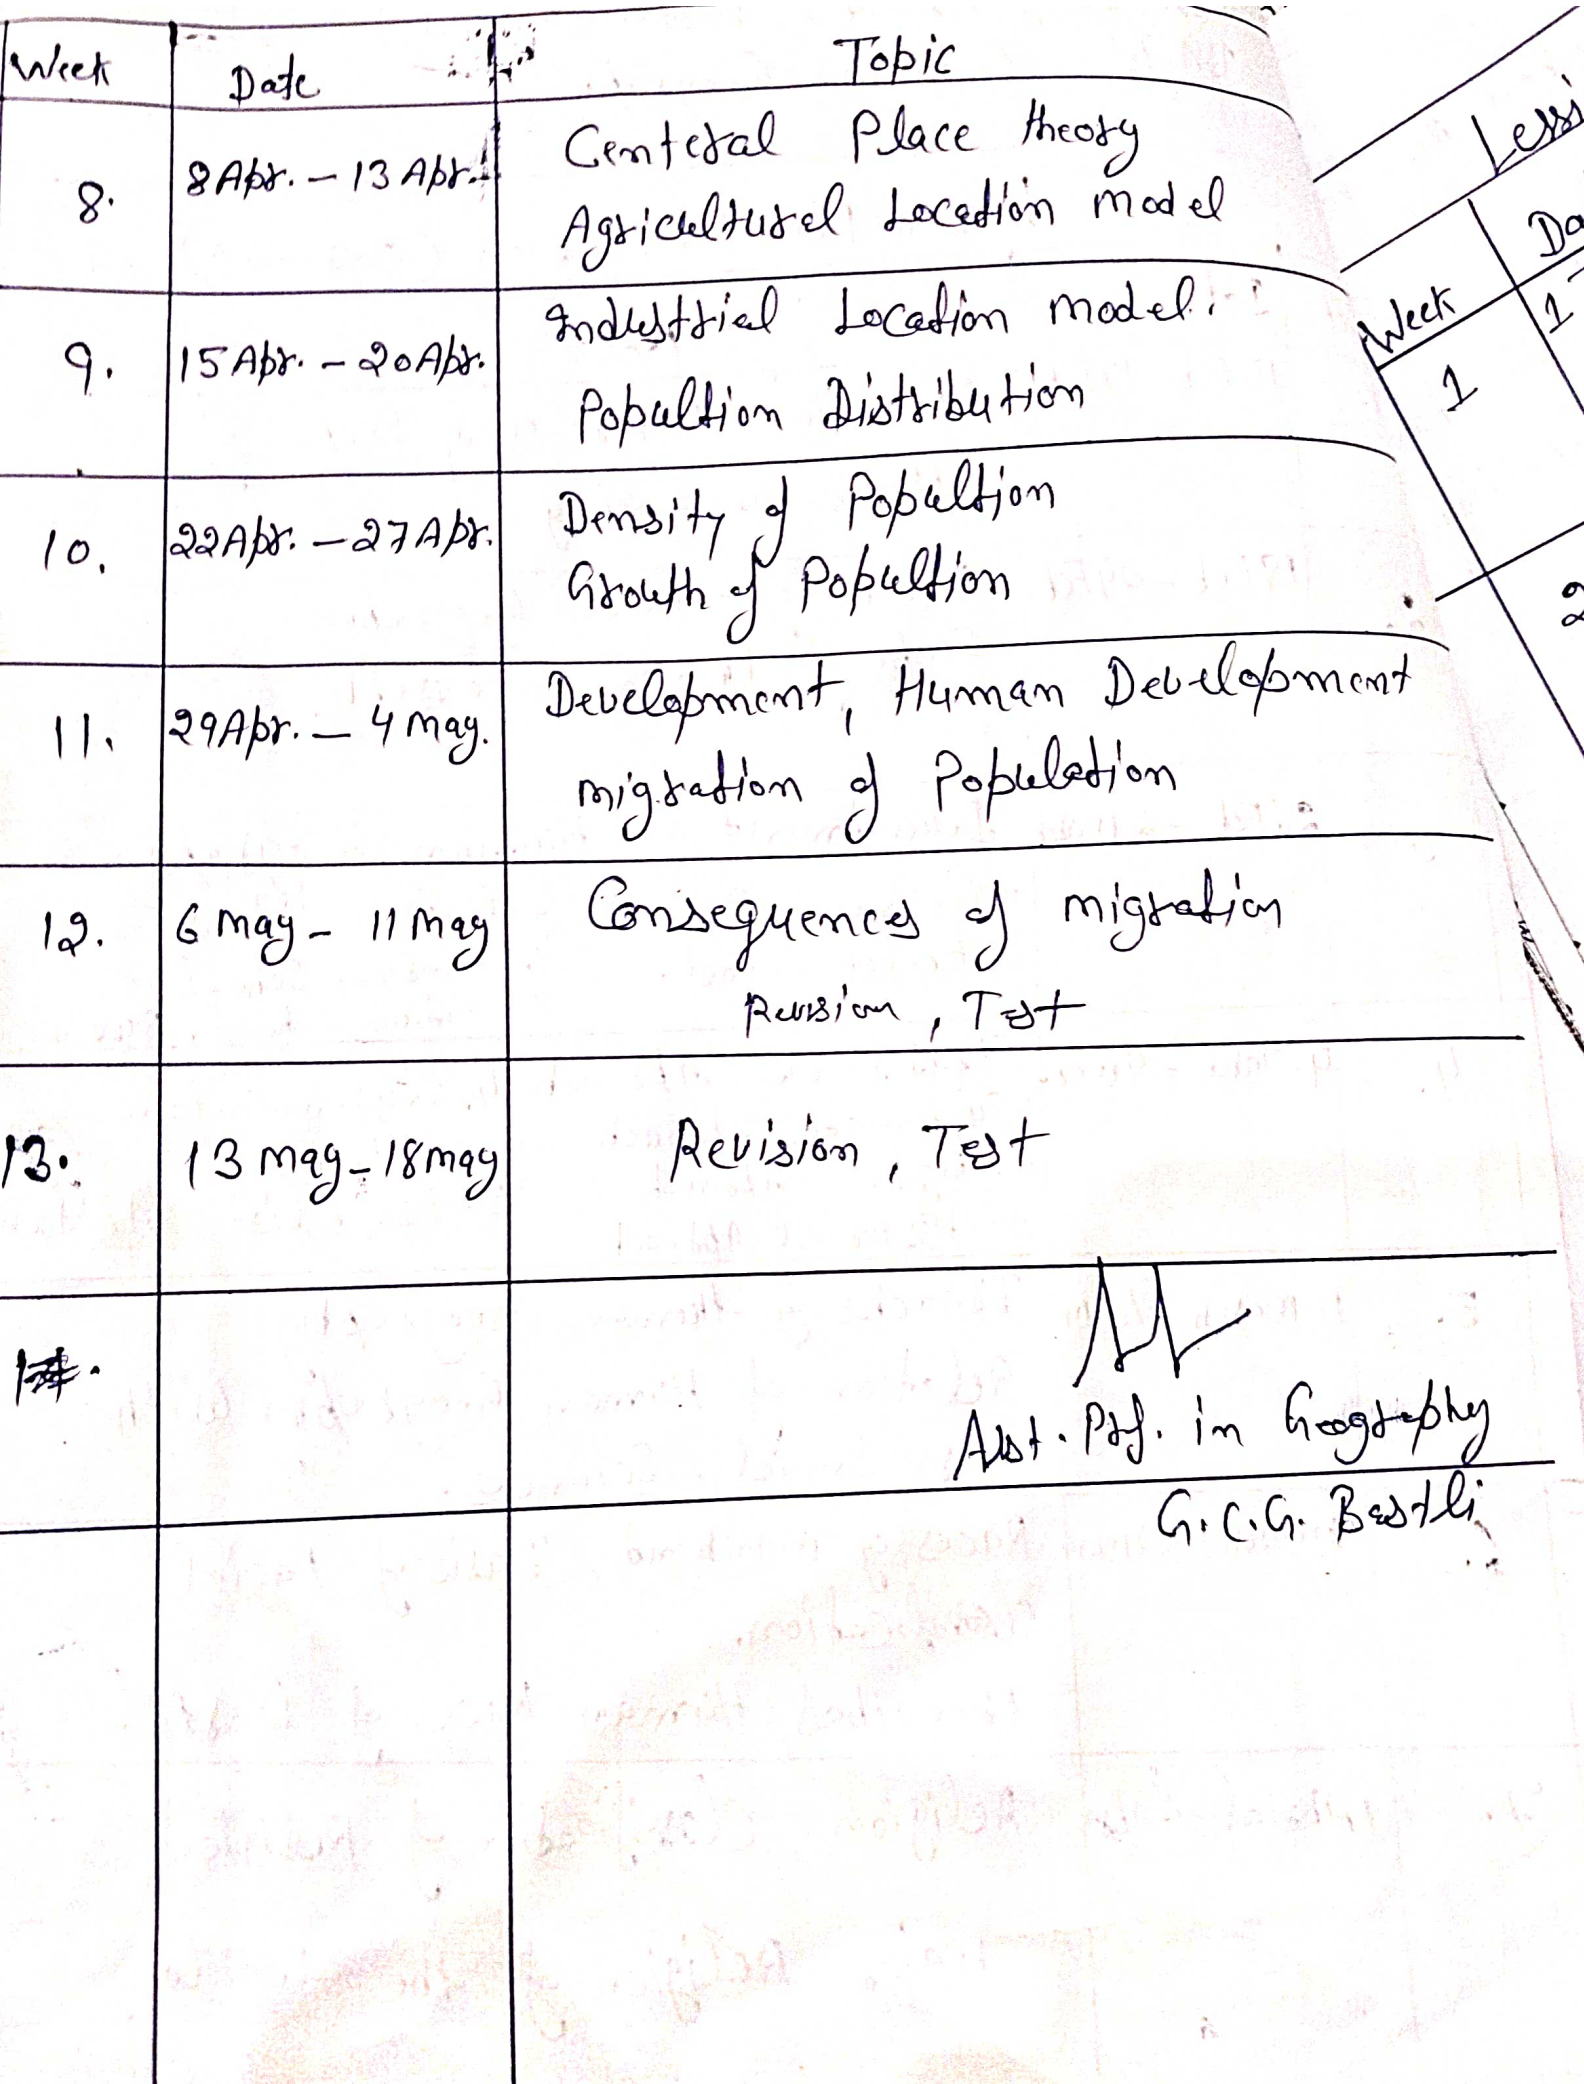 Week Date Topic
8. 8 Apr. – 13 Apr. Centeral Place theory
Agricultural Location model
9. 15 Apr. – 20 Apr. Industrial Location model.
Popultion Distribution
10. 22 Apr. – 27 Apr. Density of Popultion
Growth of Popultion
11. 29 Apr. – 4 may. Development, Human Development
migration of Population
12. 6 may – 11 may Consequences of migration
Revision, Test
13. 13 may – 18 may Revision, Test
Asst. Prof. in Geography
G.C.G.
Week
1